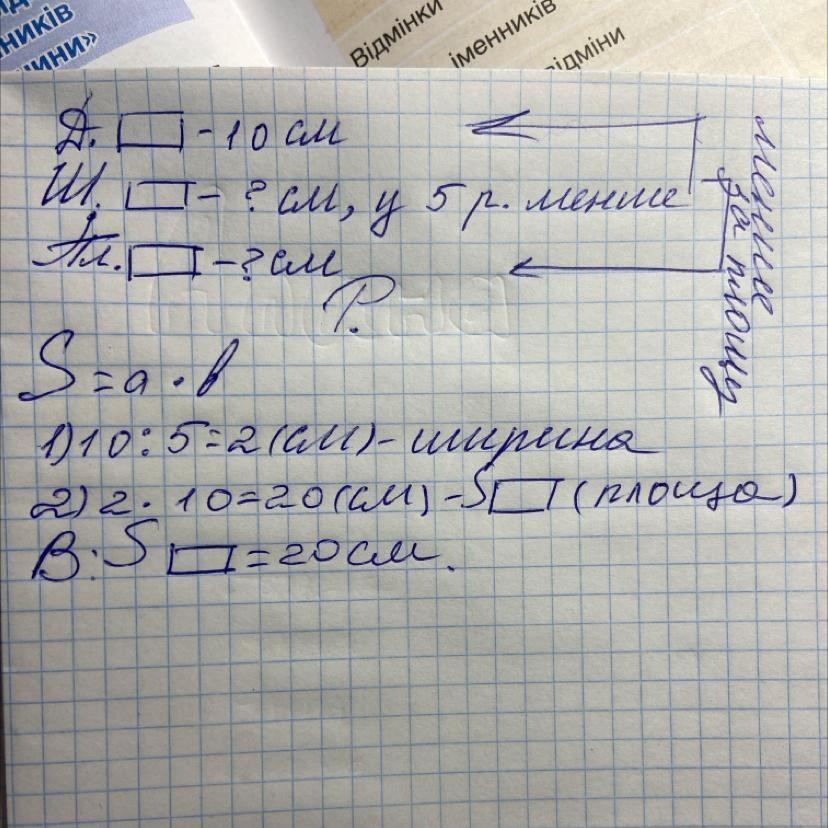 від
нників
ини»
Відмінки
іменників
відміни
Д. ▭ - 10 см
Ш. ▭ - ? см, у 5 р. менше
Пл. ▭ - ? см
менше
за площу
Р.
S = a · b
1) 10 : 5 = 2 (см) - ширина
2) 2 · 10 = 20 (см) - S ▭ (площа)
В: S ▭ = 20 см.